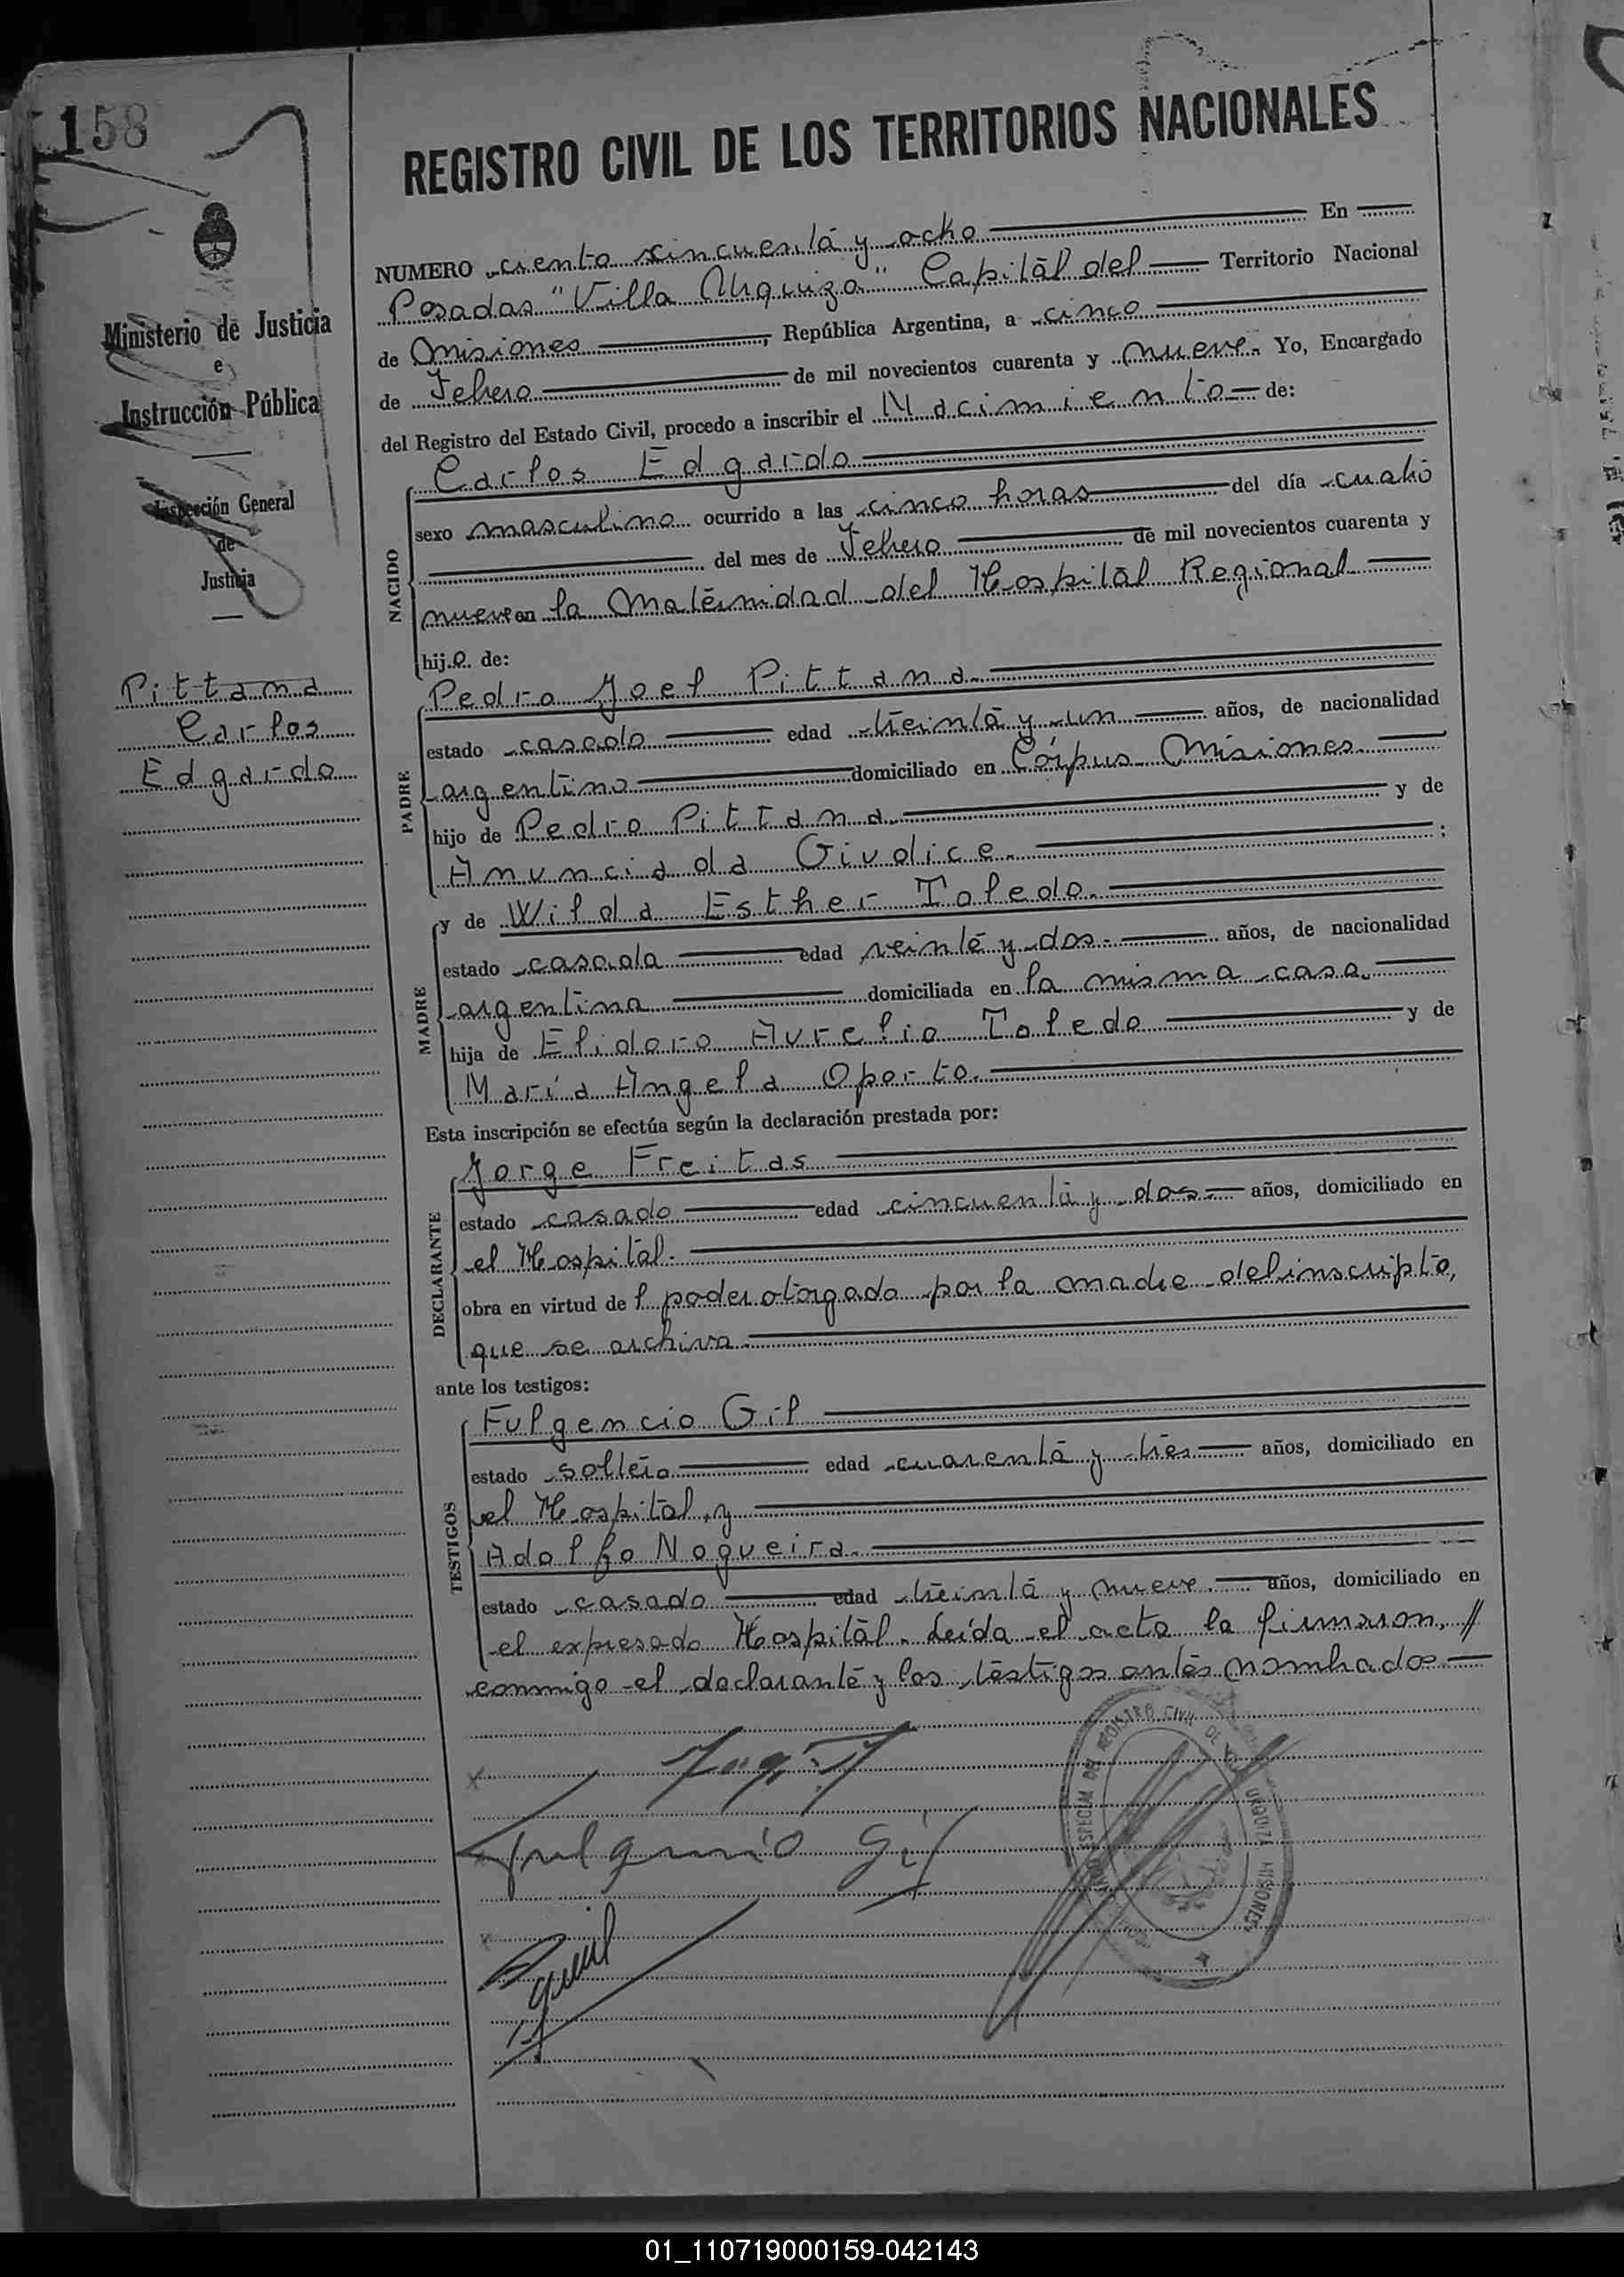 158
REGISTRO CIVIL DE LOS TERRITORIOS NACIONALES
Ministerio de Justicia
e
Instrucción Pública
Inspección General
de
Justicia
Pittana
Carlos
Edgardo
NUMERO ciento cincuenta y ocho En
Posadas "Villa Urquiza" Capital del Territorio Nacional
de Misiones, República Argentina, a cinco
de Febrero de mil novecientos cuarenta y nueve. Yo, Encargado
del Registro del Estado Civil, procedo a inscribir el Nacimiento de:
NACIDO
Carlos Edgardo
sexo masculino ocurrido a las cinco horas del día cuatro
del mes de Febrero de mil novecientos cuarenta y
nueve en la Maternidad del Hospital Regional
hijo de:
PADRE
Pedro Joel Pittana
estado casado edad treinta y un años, de nacionalidad
argentino domiciliado en Córpus Misiones
hijo de Pedro Pittana y de
Anunciada Giudice. ;
MADRE
y de Wilda Esther Toledo.
estado casada edad veinte y dos. años, de nacionalidad
argentina domiciliada en la misma casa.
hija de Elidoro Aurelio Toledo y de
María Angela Oporto.
Esta inscripción se efectúa según la declaración prestada por:
DECLARANTE
Jorge Freitas
estado casado edad cincuenta y dos años, domiciliado en
el Hospital.
obra en virtud del poder otorgado por la madre del inscripto,
que se archiva.
ante los testigos:
TESTIGOS
Fulgencio Gil
estado soltero edad cuarenta y tres años, domiciliado en
el Hospital, y
Adolfo Nogueira.
estado casado edad treinta y nueve. años, domiciliado en
el expresado Hospital. Leída el acta la firmaron, //
conmigo el declarante y los testigos antes nombrados
Fulgencio Gil
ESPECIAL DEL REGISTRO CIVIL DE VILLA URQUIZA MISIONES
01_110719000159-042143